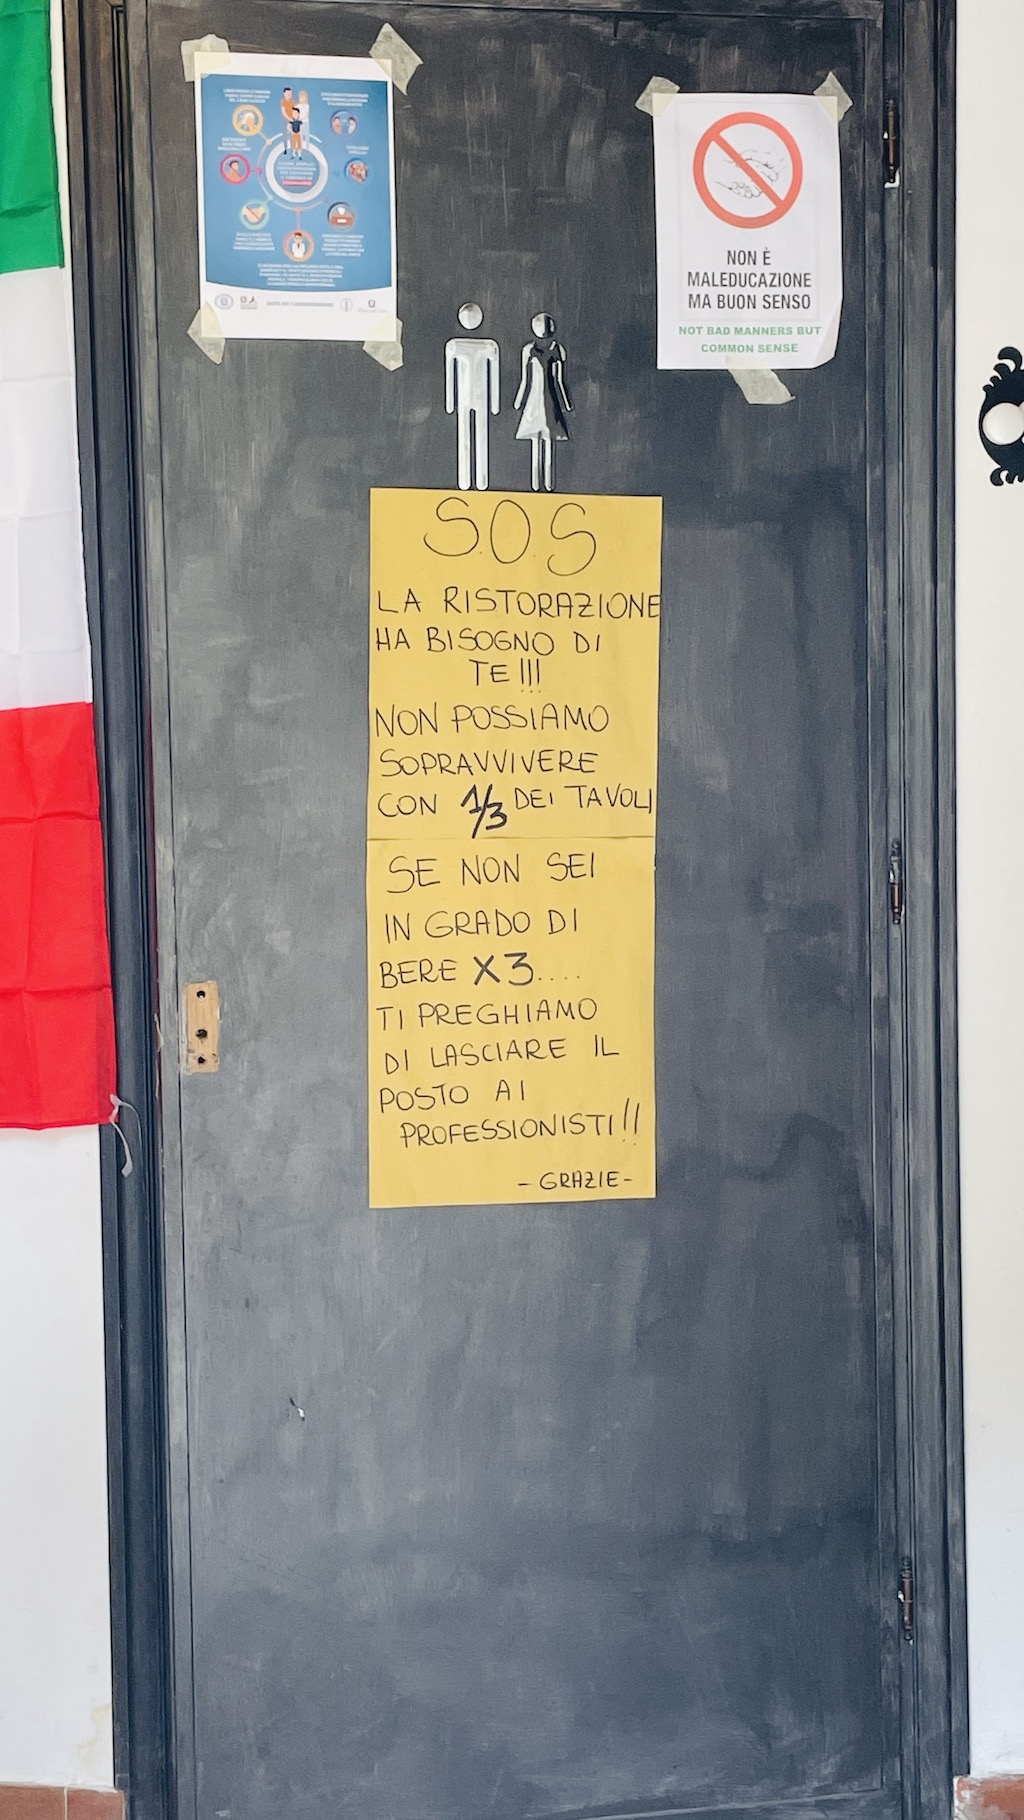 NON È
MALEDUCAZIONE
MA BUON SENSO
NOT BAD MANNERS BUT
COMMON SENSE
S.O.S
LA RISTORAZIONE
HA BISOGNO DI
TE!!!
NON POSSIAMO
SOPRAVVIVERE
CON 1/3 DEI TAVOLI
SE NON SEI
IN GRADO DI
BERE X3....
TI PREGHIAMO
DI LASCIARE IL
POSTO AI
PROFESSIONISTI!!
-GRAZIE-